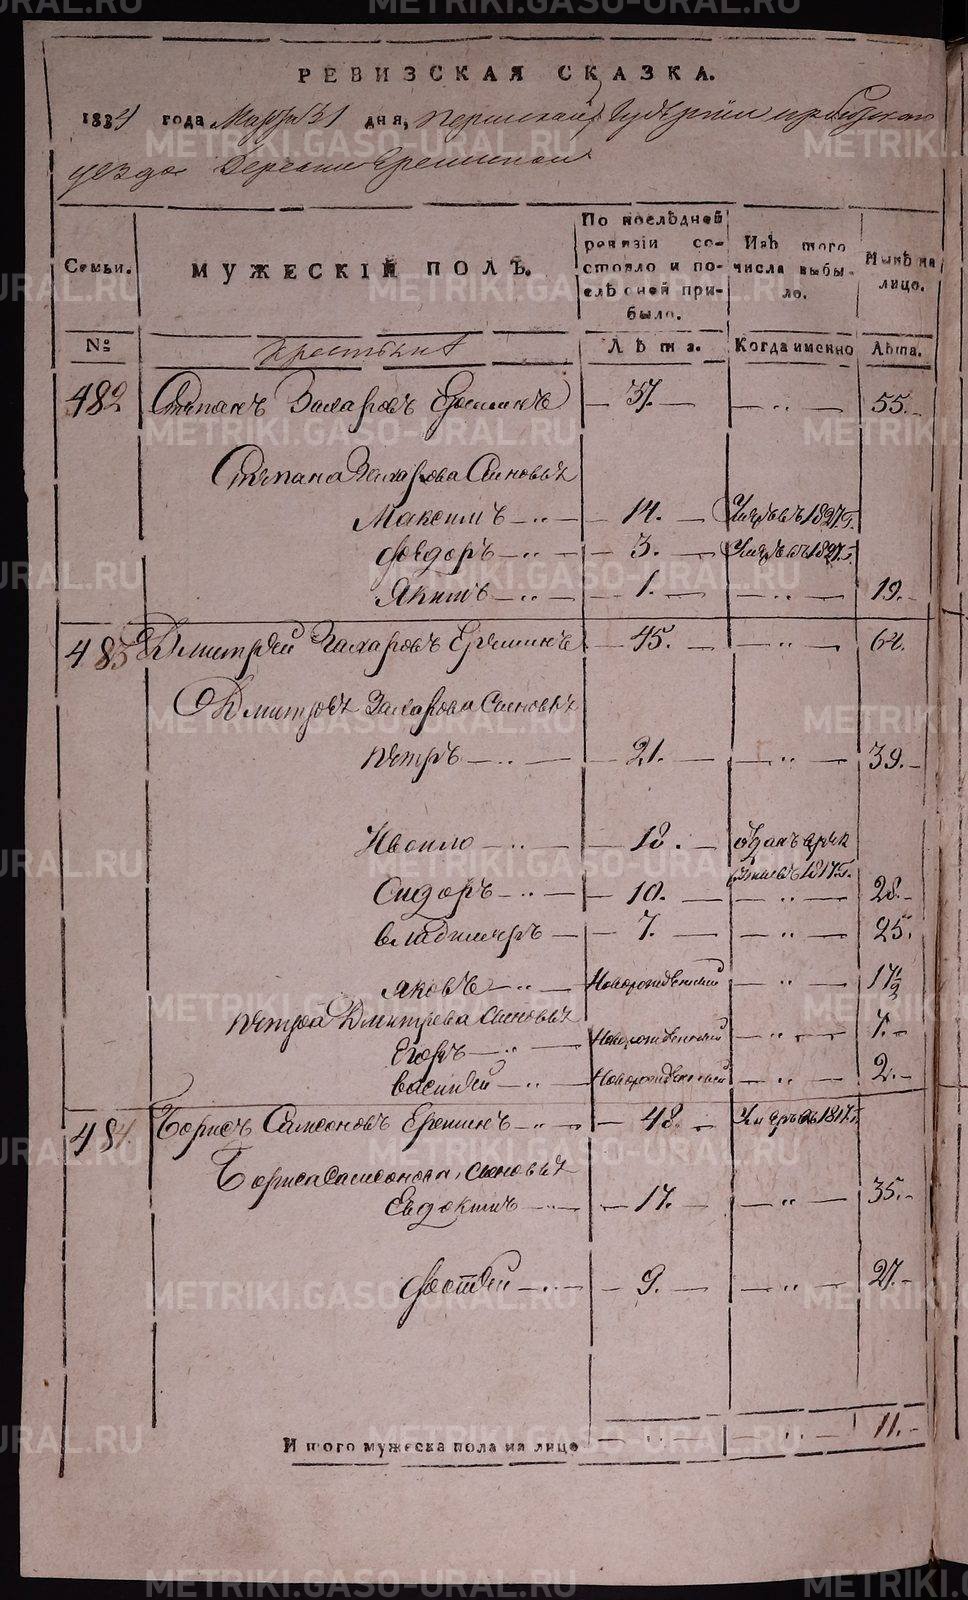 РЕВИЗСКАЯ СКАЗКА.
1834 года Марта 31 дня, Пермской Губернии Ирбитскаго
уезда Деревни Ерёминой
Семьи.
МУЖЕСКІЙ ПОЛЪ.
По послѣдней ревизіи состояло и послѣ оней прибыло.
Изъ того числа выбыло.
Нынѣ на лицо.
№
крестьянѣ
Лѣта.
Когда именно
Лѣта.
482 Стѣпанъ Захаровъ Ерѣминъ — 37. — „ — 55.
Стѣпана Захарова Сыновья
Максимъ — „ — 14. — Умѣръ въ 1827 г.
Ѳѣдоръ — „ — 3. — Умѣръ въ 1827 г.
Якимъ — „ — 1. — „ — 19.
483 Дмитрѣй Захаровъ Ерѣминъ — 45. — „ — 62.
Дмитрѣя Захарова Сыновья
Пѣтръ — „ — 21. — „ — 39.
18.
1817 г.
Сидоръ — „ — 10. — „ — 28.
владимѣръ — 7. — „ — 25.
Яковъ — „ — Новорождѣнный — „ — 17½
Пѣтра Дмитрѣва Сыновья
Егоръ — „ — Новорождѣнный — „ — 7.
василѣй — „ — Новорождѣнный — „ — 2.
484 Борисъ Самсоновъ Ерѣминъ — „ — 48. — Умѣръ въ 1817 г.
Бориса Самсонова Сыновья
Евдокимъ — 17. — „ — 35.
9. — „ — 27.
И того мужеска пола на лице — „ — „ — 11.
METRIKI.GASO-URAL.RU